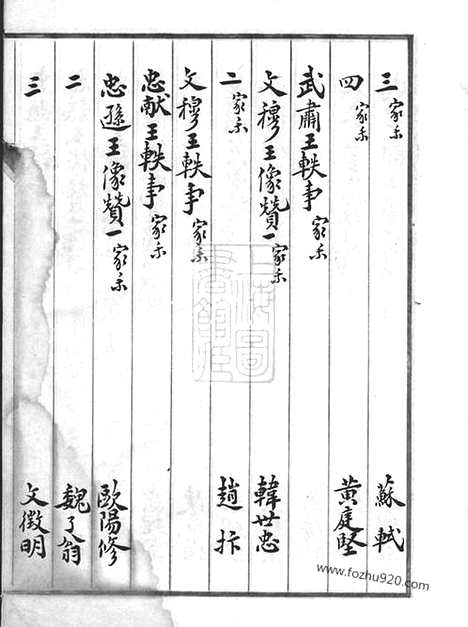 三 家乘 蘇軾
四 家乘 黃庭堅
武肅王軼事 家乘
文穆王像贊一 家乘 韓世忠
二 家乘 趙抃
文穆王軼事 家乘
忠献王軼事 家乘
忠遜王像贊一 家乘 歐陽修
二 魏了翁
三 文徵明
www.fozhu920.com